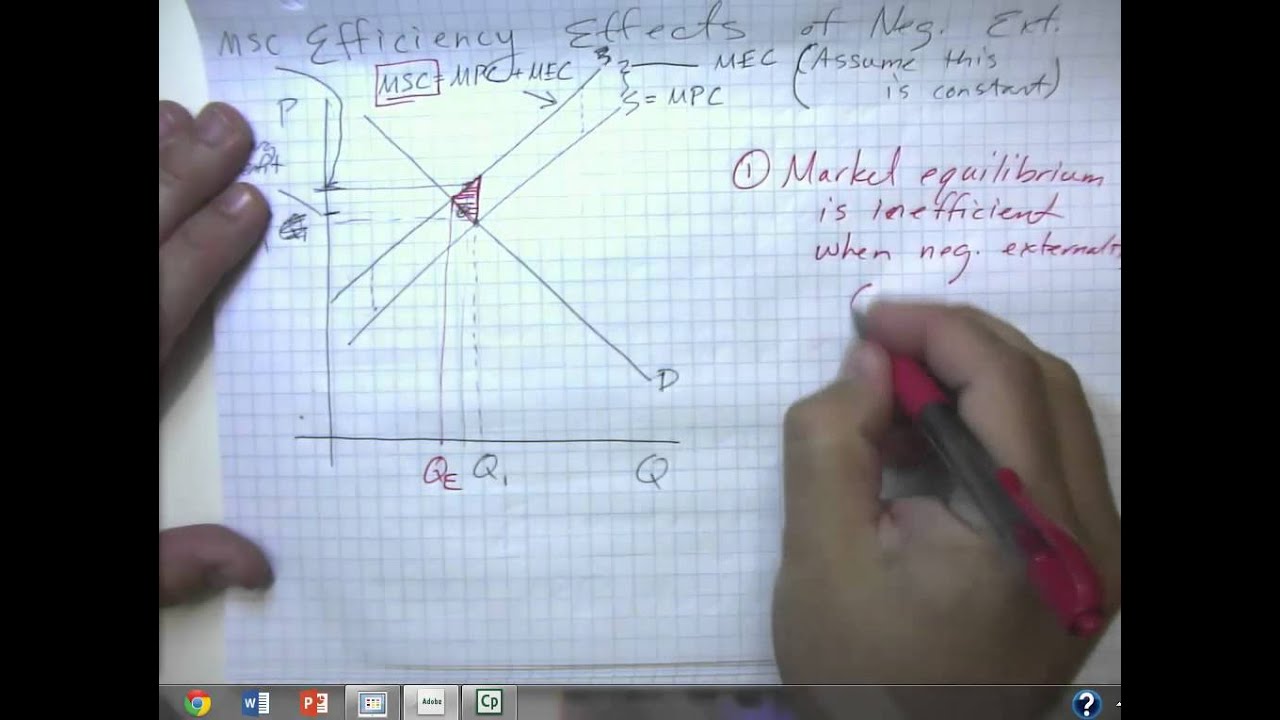 MSC Efficiency Effects of Neg. Ext.
MSC = MPC + MEC
MEC (Assume this
is constant)
S = MPC
P
① Market equilibrium
is inefficient
when neg. external
D
QE Q1 Q
W
P
Adobe
Cp
?